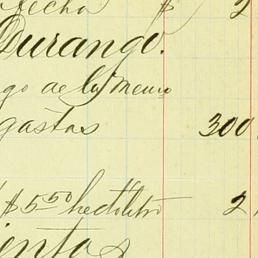 fecha $ 2
Durango.
go de los menu
gastos 300
$5.50 hectolitro 2
ientos